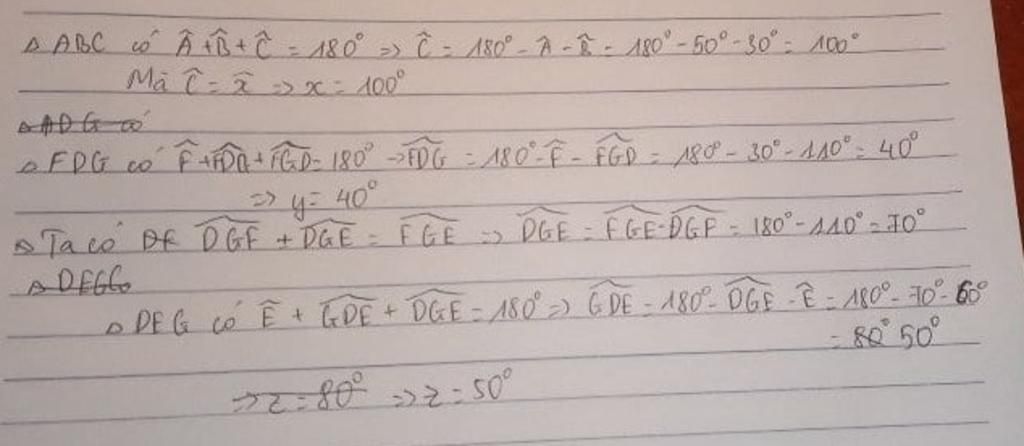 Δ ABC có Â + B̂ + Ĉ = 180° => Ĉ = 180° - Â - B̂ = 180° - 50° - 30° = 100°
Mà Ĉ = x̂ => x = 100°
Δ ADG có
Δ FDG có F̂ + FDG + FGD = 180° -> FDG = 180° - F̂ - FGD = 180° - 30° - 110° = 40°
=> y = 40°
Δ Ta có DGF + DGE = FGE => DGE = FGE - DGF = 180° - 110° = 70°
Δ DEG Có
Δ DEG có Ê + GDE + DGE = 180° => GDE = 180° - DGE - Ê = 180° - 70° - 60°
= 80° 50°
=> z = 80° => z = 50°